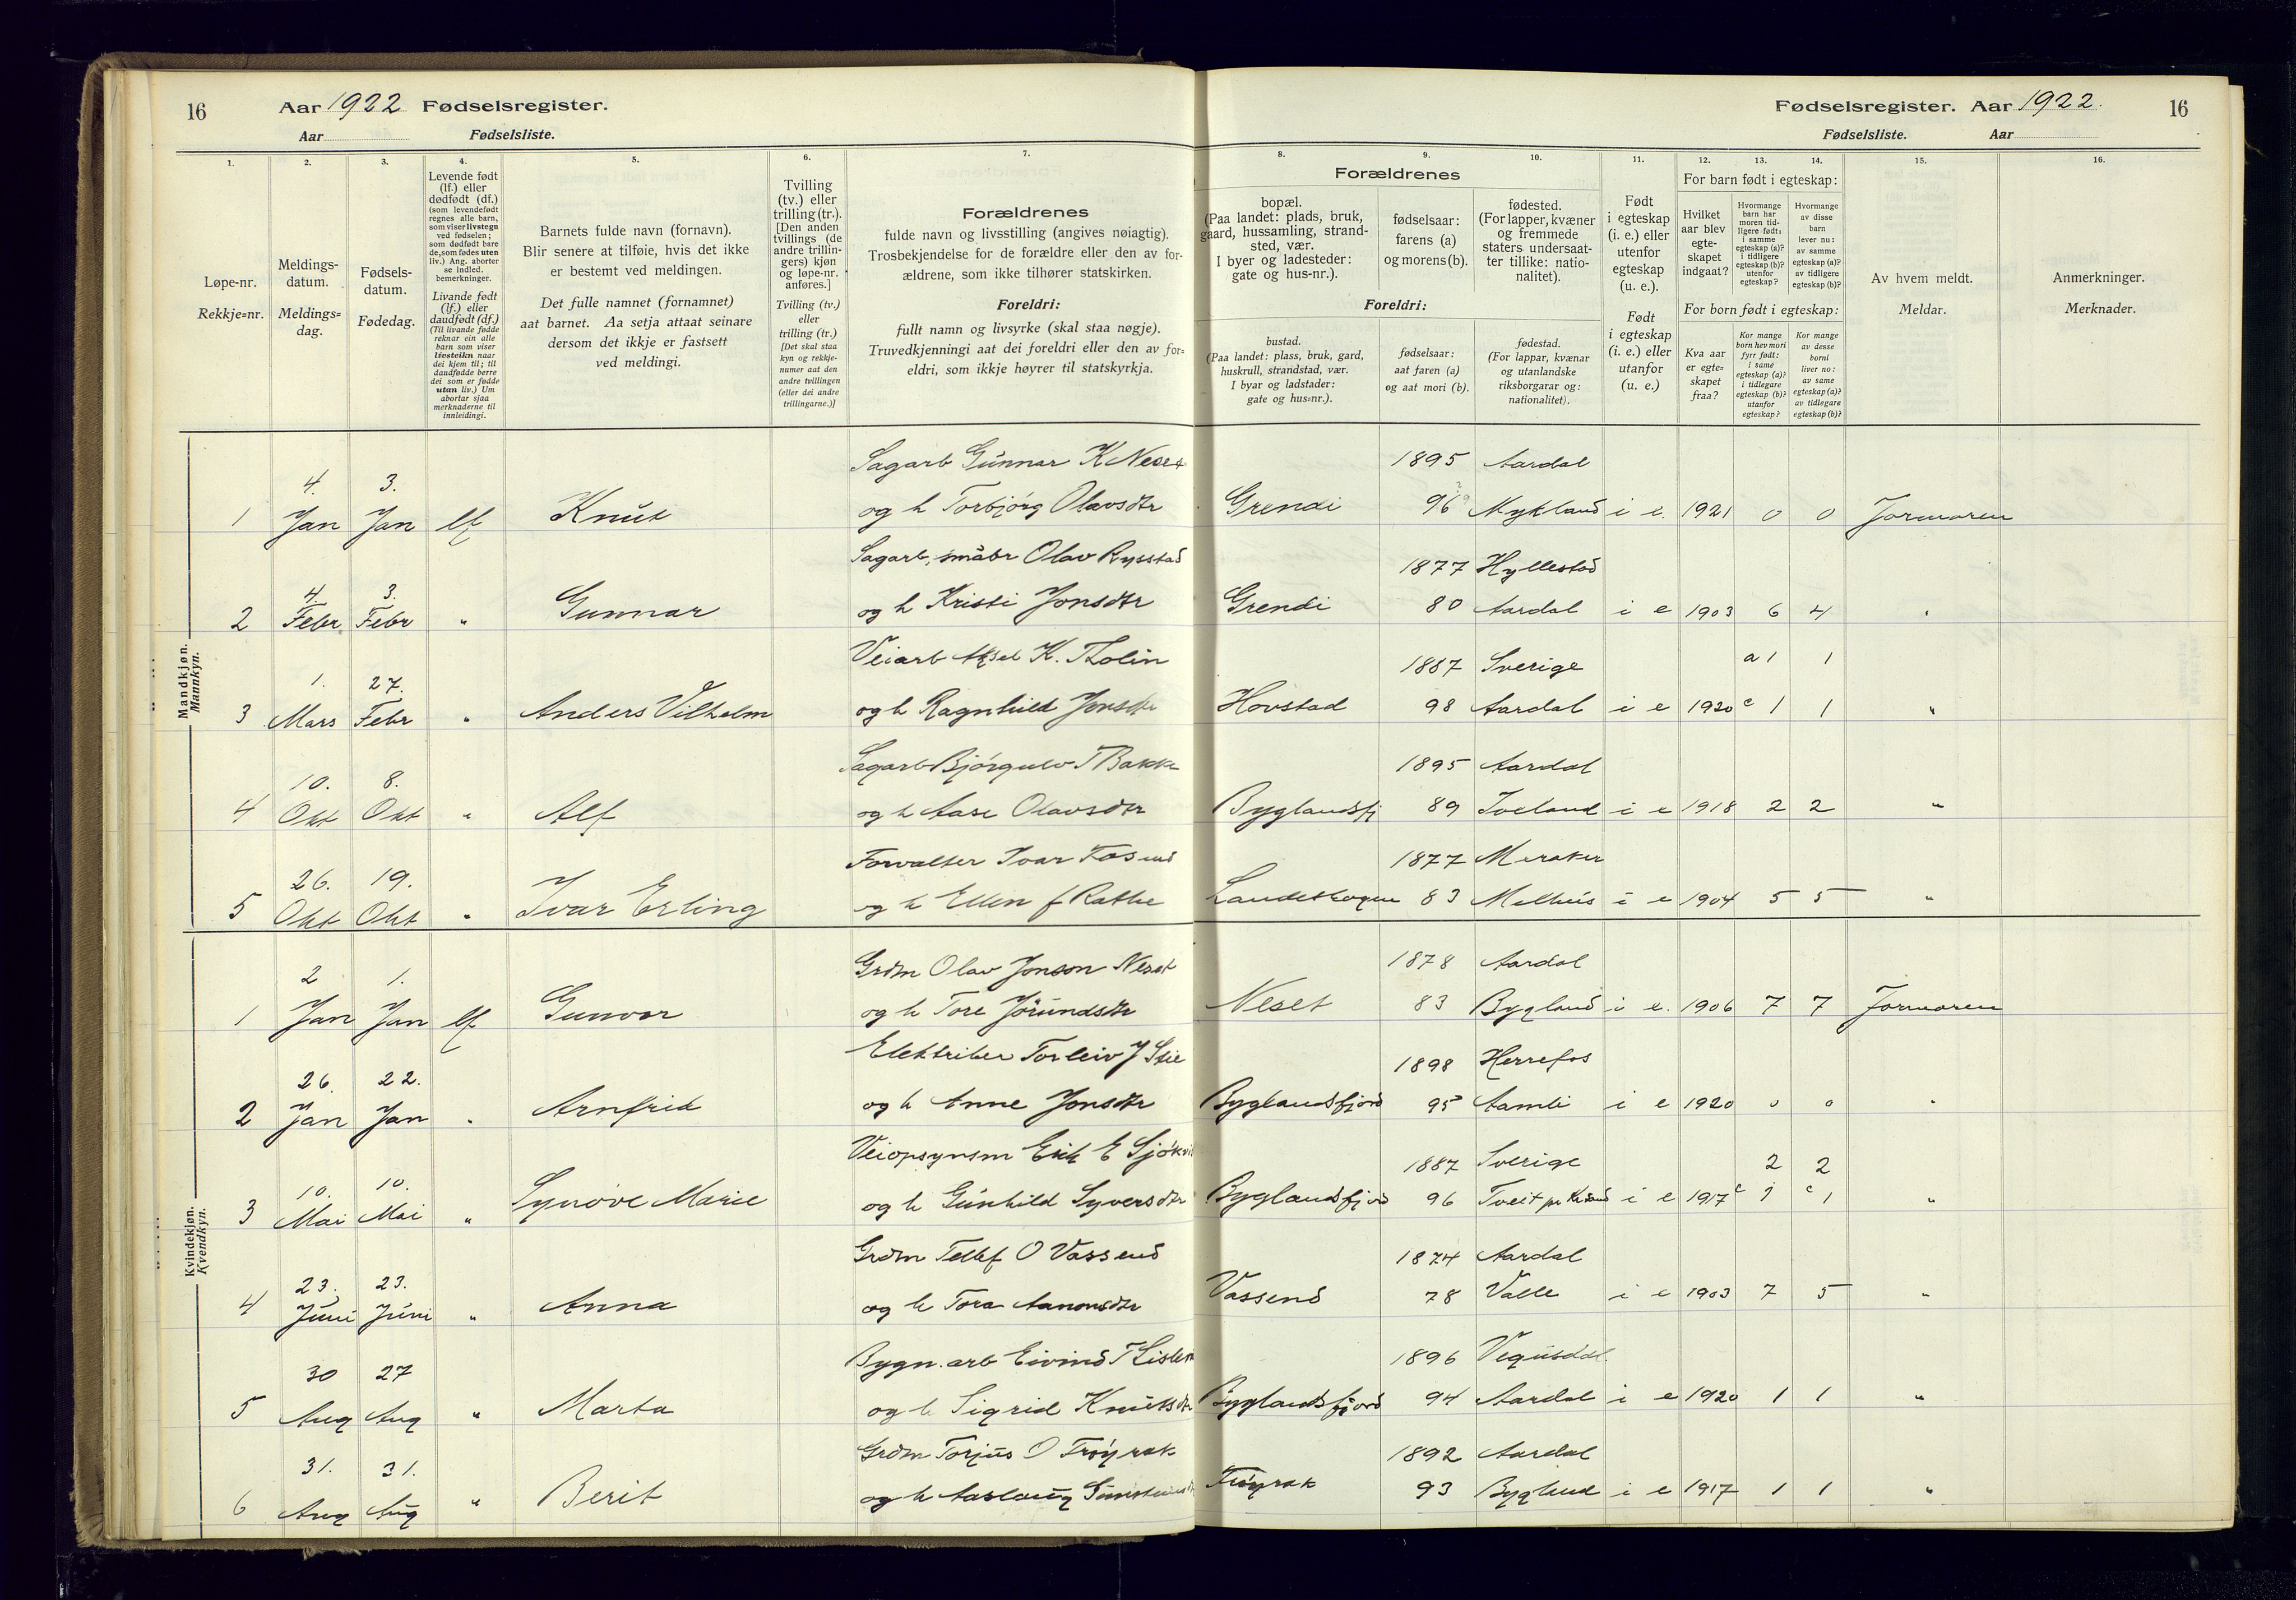 16
Aar 1922 Fødselsregister.
Aar Fødselsliste.
Fødselsregister. Aar 1922.
16
Fødselsliste. Aar
1. 2. 3. 4. 5. 6. 7. 8. 9. 10. 11. 12. 13. 14. 15. 16.
Løpe-nr.
Rekkje=nr.
Meldings-
datum.
Meldings=
dag.
Fødsels-
datum.
Fødedag.
Levende født
(lf.) eller
dødfødt (df.)
(som levendefødt
regnes alle barn,
som viser livstegn
ved fødselen;
som dødfødt bare
de, som fødes uten
liv.) Ang. aborter
se indled.
bemerkninger.
Livande født
(lf.) eller
daudfødt (df.)
(Til livande fødde
reknar ein alle
barn som viser
livsteikn naar
dei kjem til; til
daudfødde berre
dei som er fødde
utan liv.) Um
abortar sjaa
merknaderne til
innleidingi.
Barnets fulde navn (fornavn).
Blir senere at tilføie, hvis det ikke
er bestemt ved meldingen.
Det fulle namnet (fornamnet)
aat barnet. Aa setja attaat seinare
dersom det ikkje er fastsett
ved meldingi.
Tvilling
(tv.) eller
trilling (tr.).
[Den anden
tvillings (de
andre trillin-
gers) kjøn
og løpe-nr.
anføres.]
Tvilling (tv.)
eller
trilling (tr.)
[Det skal staa
kyn og rekkje-
numer aat den
andre tvillingen
(eller dei andre
trillingarne.)]
Forældrenes
fulde navn og livsstilling (angives nøiagtig).
Trosbekjendelse for de forældre eller den av for-
ældrene, som ikke tilhører statskirken.
Foreldri:
fullt namn og livsyrke (skal staa nøgje).
Truvedkjenningi aat dei foreldri eller den av for=
eldri, som ikkje høyrer til statskyrkja.
Forældrenes
bopæl.
(Paa landet: plads, bruk,
gaard, hussamling, strand-
sted, vær.
I byer og ladesteder:
gate og hus-nr.).
fødselsaar:
farens (a)
og morens (b).
fødested.
(For lapper, kvæner
og fremmede
staters undersaat-
ter tillike: natio-
nalitet).
Foreldri:
bustad.
(Paa landet: plass, bruk, gard,
huskrull, strandstad, vær.
I byar og ladstader:
gate og hus=nr.).
fødselsaar:
aat faren (a)
og aat mori (b).
fødestad.
(For lappar, kvænar
og utanlandske
riksborgarar og:
nationalitet).
Født
i egteskap
(i. e.) eller
utenfor
egteskap
(u. e.).
Født
i egteskap
(i. e.) eller
utanfor
(u. e.)
For barn født i egteskap:
Hvilket
aar blev
egte-
skapet
indgaat?
Hvormange
barn har
moren tid-
ligere født:
i samme
egteskap (a)?
i tidligere
egteskap (b)?
utenfor
egteskap?
Hvormange
av disse
barn
lever nu:
av samme
egteskap (a)?
av tidligere
egteskap (b)?
For born født i egteskap:
Kva aar
er egte=
skapet
fraa?
Kor mange
born hev mori
fyrr født:
i same
egteskap (a)?
i tidlegare
egteskap (b)?
utanfor
egteskap?
Kor mange
av desse
borni
liver no:
av same
egteskap (a)?
av tidlegare
egteskap (b)?
Av hvem meldt.
Meldar.
Anmerkninger.
Merknader.
Mandkjøn.
Mannkyn.
Sagarb Gunnar K Neset 1895 Aardal
1 4. Jan 3. Jan lf Knut og h Torbjørg Olavsdtr Grendi 96 Mykland i e. 1921 0 0 Jormoren
Sagarb, småbr Olav Rysstad 1877 Hyllestad
2 4. Febr 3. Febr " Gunnar og h Kristi Jonsdtr Grendi 80 Aardal i e 1903 6 4 "
Veiarb Aksel K. Tholin 1887 Sverige a 1 1
3 1. Mars 27. Febr " Anders Vilhelm og h Ragnhild Jonsdtr Hovstad 98 Aardal i e 1920 c 1 1 "
Sagarb Bjørgulv T Bakke 1895 Aardal
4 10. Okt 8. Okt " Alf og h Aase Olavsdtr Byglandsfj 89 Iveland i e 1918 2 2 "
Forvalter Ivar Fosend 1877 Meraker
5 26. Okt 19. Okt " Ivar Erling og h Ellen f Rathe Landeskogen 83 Melhus i e 1904 5 5 "
Kvindekjøn.
Kvendkyn.
Grdm Olav Jonson Neset 1878 Aardal
1 2 Jan 1. Jan lf Gunvor og h Tore Jørundsdtr Neset 83 Bygland i e. 1906 7 7 Jormoren
Elektriker Torleiv J Stie 1898 Herrefos
2 26. Jan 22. Jan " Arnfrid og h Anne Jonsdtr Byglandsfjord 95 Aamli i e 1920 0 0 "
Veiopsynsm Erik E 1887 Sverige 2 2
3 10. Mai 10. Mai " Synöve Marie og h Gunhild Syversdtr Byglandsfjord 96 Tveit pr Krsand i e 1917 c 1 c 1 "
Grdm Tellef O Vassend 1874 Aardal
4 23. Juni 23. Juni " Anna og h Tora Aanonsdtr Vassend 78 Valle i e 1903 7 5 "
Bygn. arb Eivind T 1896 Vegusdal.
5 30 Aug 27 Aug " Marta og h Sigrid Knutsdtr Byglandsfjord 94 Aardal i e 1920 1 1 "
Grdm Torjus O Frøyrak 1892 Aardal
6 31. Aug 31. Aug " Berit og h Aaslaug Frøyrak 93 Bygland i e 1917 1 1 "